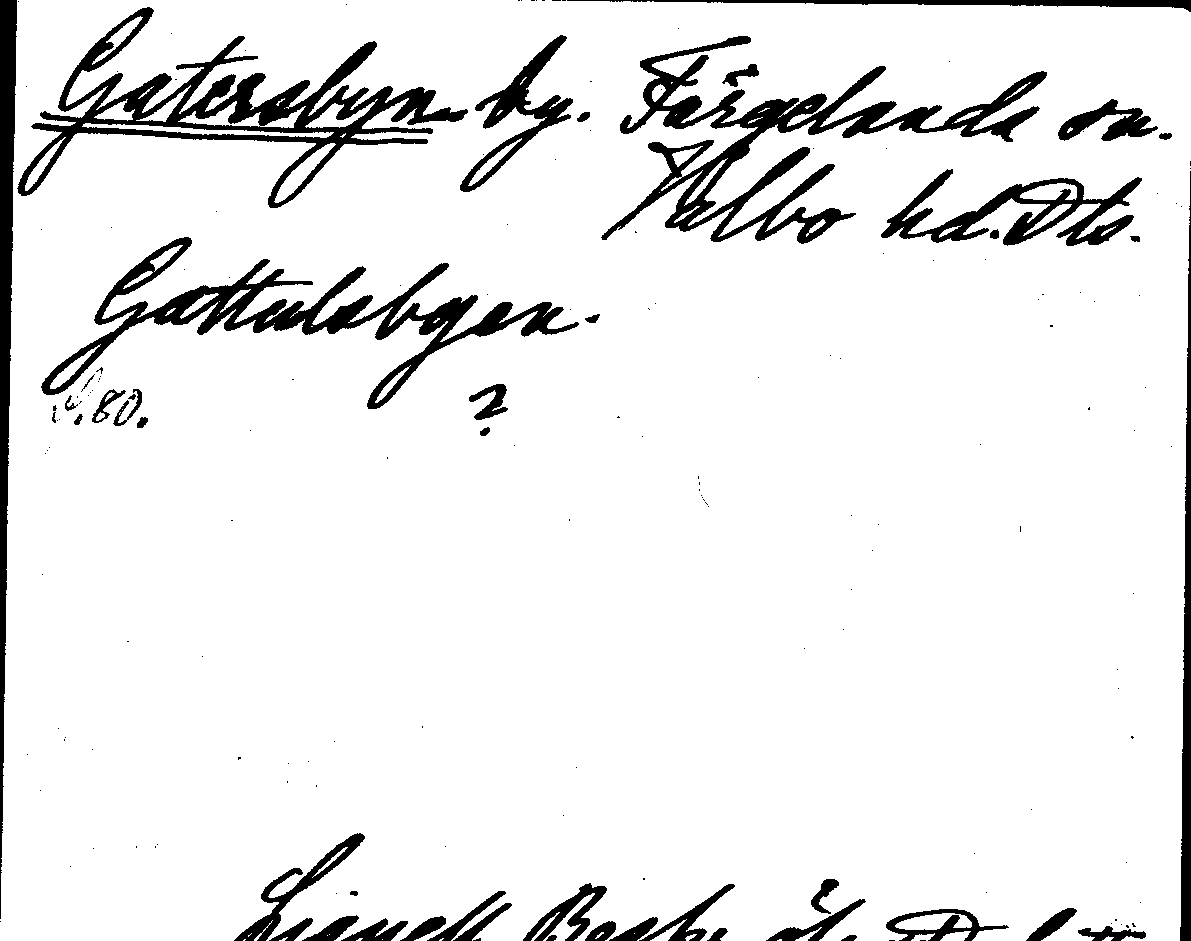 Gatersbyn. by. Färgelanda sn.
Valbo hd. Dls.
Gattulsbyen.
S. 80. ?
Lignell Beskr. öf. Dal